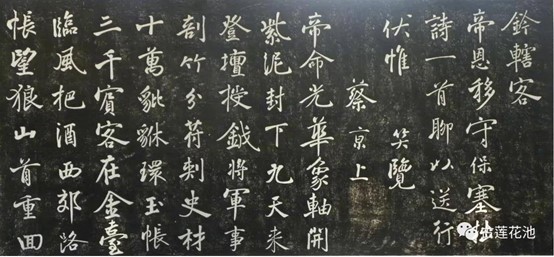 鈐轄客
帝恩移守保塞
詩一首聊以送行
伏惟 笑覽
蔡京上
帝命光華象軸開
紫泥封下九天来
登壇授鉞將軍事
剖竹分苻刺史材
十萬貔貅環玉帳
三千賓客在金臺
臨風把酒西郊路
悵望狼山首重回
古莲花池